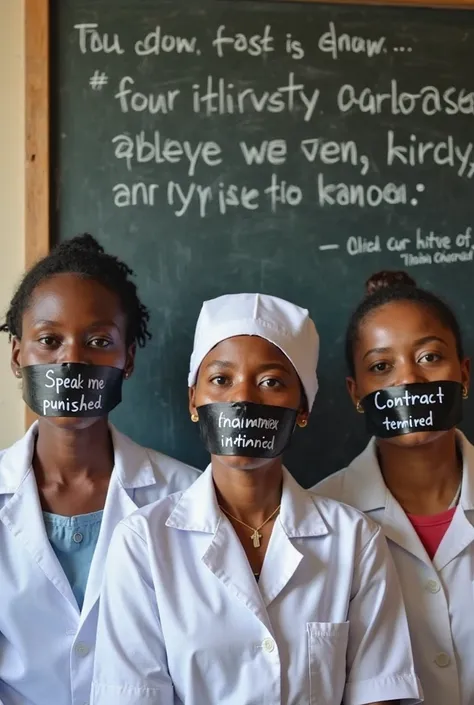 Tou dow. fost is dnaw...
# four itlirvsty oarloase
ableye we ven, kirdy,
anr ryyise to kanoor:
— Clied cur hitve of.
Speak me
punished
intinned
Contract
termired